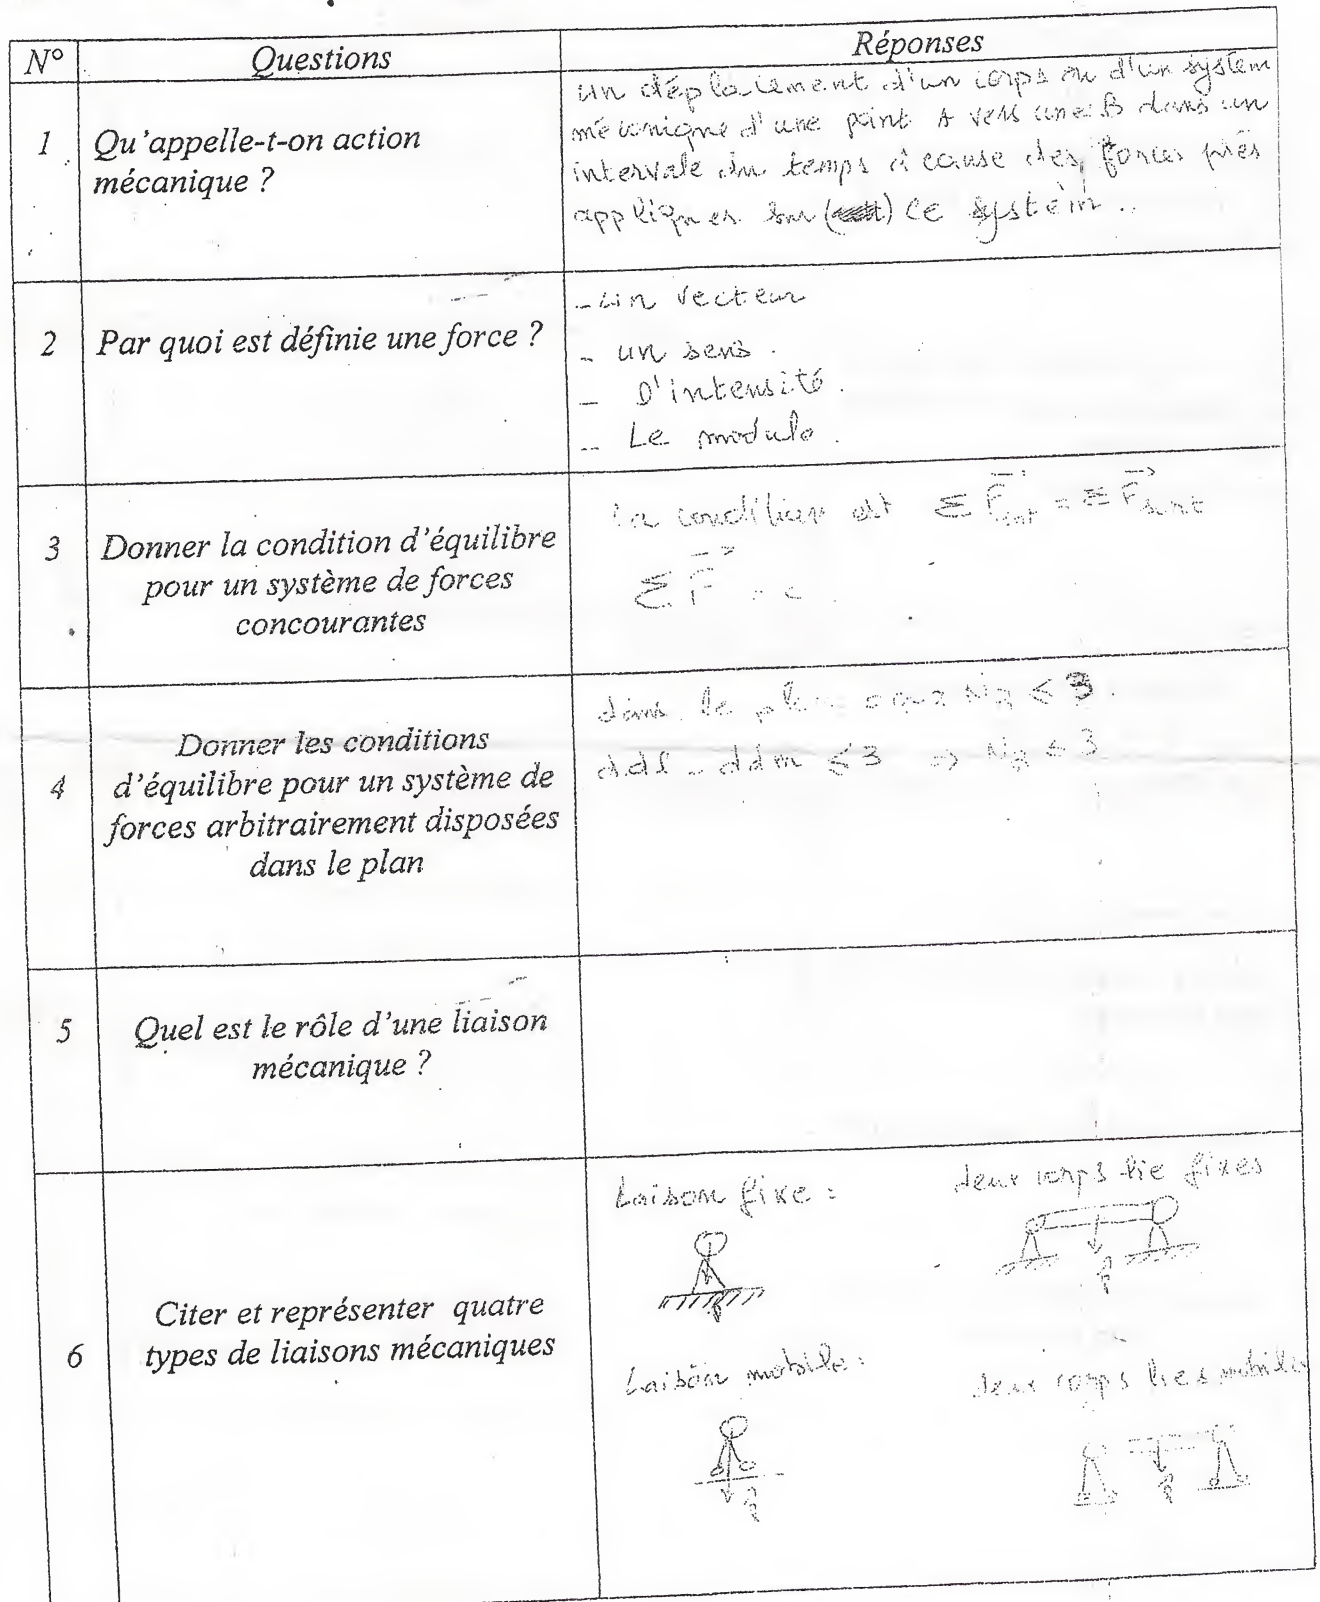 N° Questions Réponses
1 Qu'appelle-t-on action
mécanique ?
un déplacement d'un corps ou d'un systèm
mécanique d'une point A vers une B dans un
intervale du temps à cause des forces
appliques sur ce systèm.
2 Par quoi est définie une force ?
- un vecteur
- un sens.
- D'intensité.
- Le modulo.
3 Donner la condition d'équilibre
pour un système de forces
concourantes
la condition est Σ F =Σ F
Σ F
4 Donner les conditions
d'équilibre pour un système de
forces arbitrairement disposées
dans le plan
dans le ≤ 3.
ddl - ddm ≤3 => ≤ 3
5 Quel est le rôle d'une liaison
mécanique ?
6 Citer et représenter quatre
types de liaisons mécaniques
Laison fixe : deux corps lie fixes
Laison mobile : deux corps lies mobiles